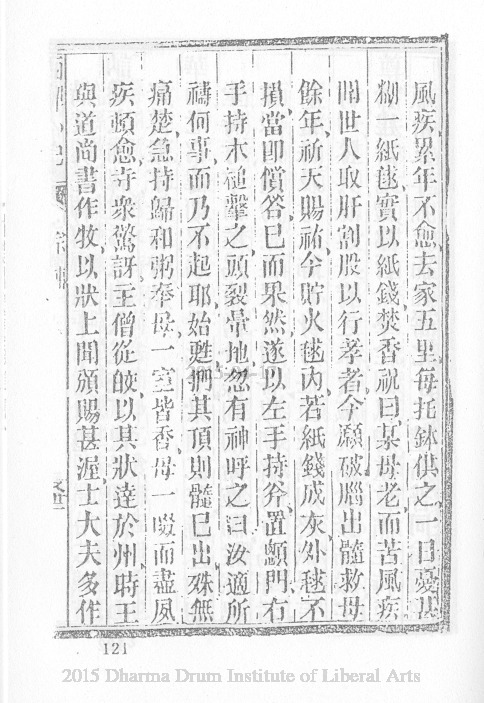 風疾累年不愈去家五里每托鉢供之一日憂甚
糊一紙毬實以紙錢焚香祝曰某母老而苦風疾
聞世人取肝割股以行孝者今灝破腦出髓救母
餘年祈天賜祐今貯火毬內若紙錢成灰外毬不
損當即償答已而果然遂以左手持斧置顱門右
手持木槌擊之頭裂暈地忽有神呼之曰汝適所
禱何事而乃不起耶始甦捫其頂則髓已出殊無
痛楚急持歸和粥奉母一室皆香母一啜而盡風
疾頓愈寺眾驚訝主僧從皎以其狀達於州時王
與道尚書作牧以狀上聞頒賜甚渥士大夫多作
121
2015 Dharma Drum Institute of Liberal Arts